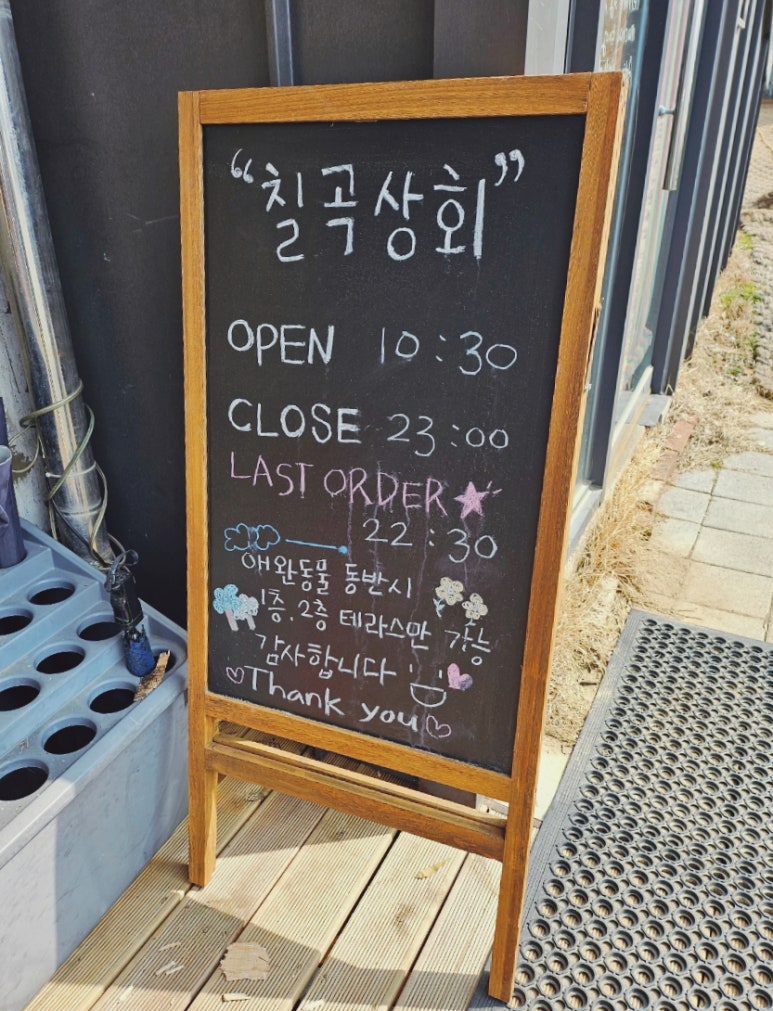 "칠곡상회"
OPEN 10:30
CLOSE 23:00
LAST ORDER
22:30
애완동물 동반시
1층.2층 테라스만 가능
감사합니다
Thank you